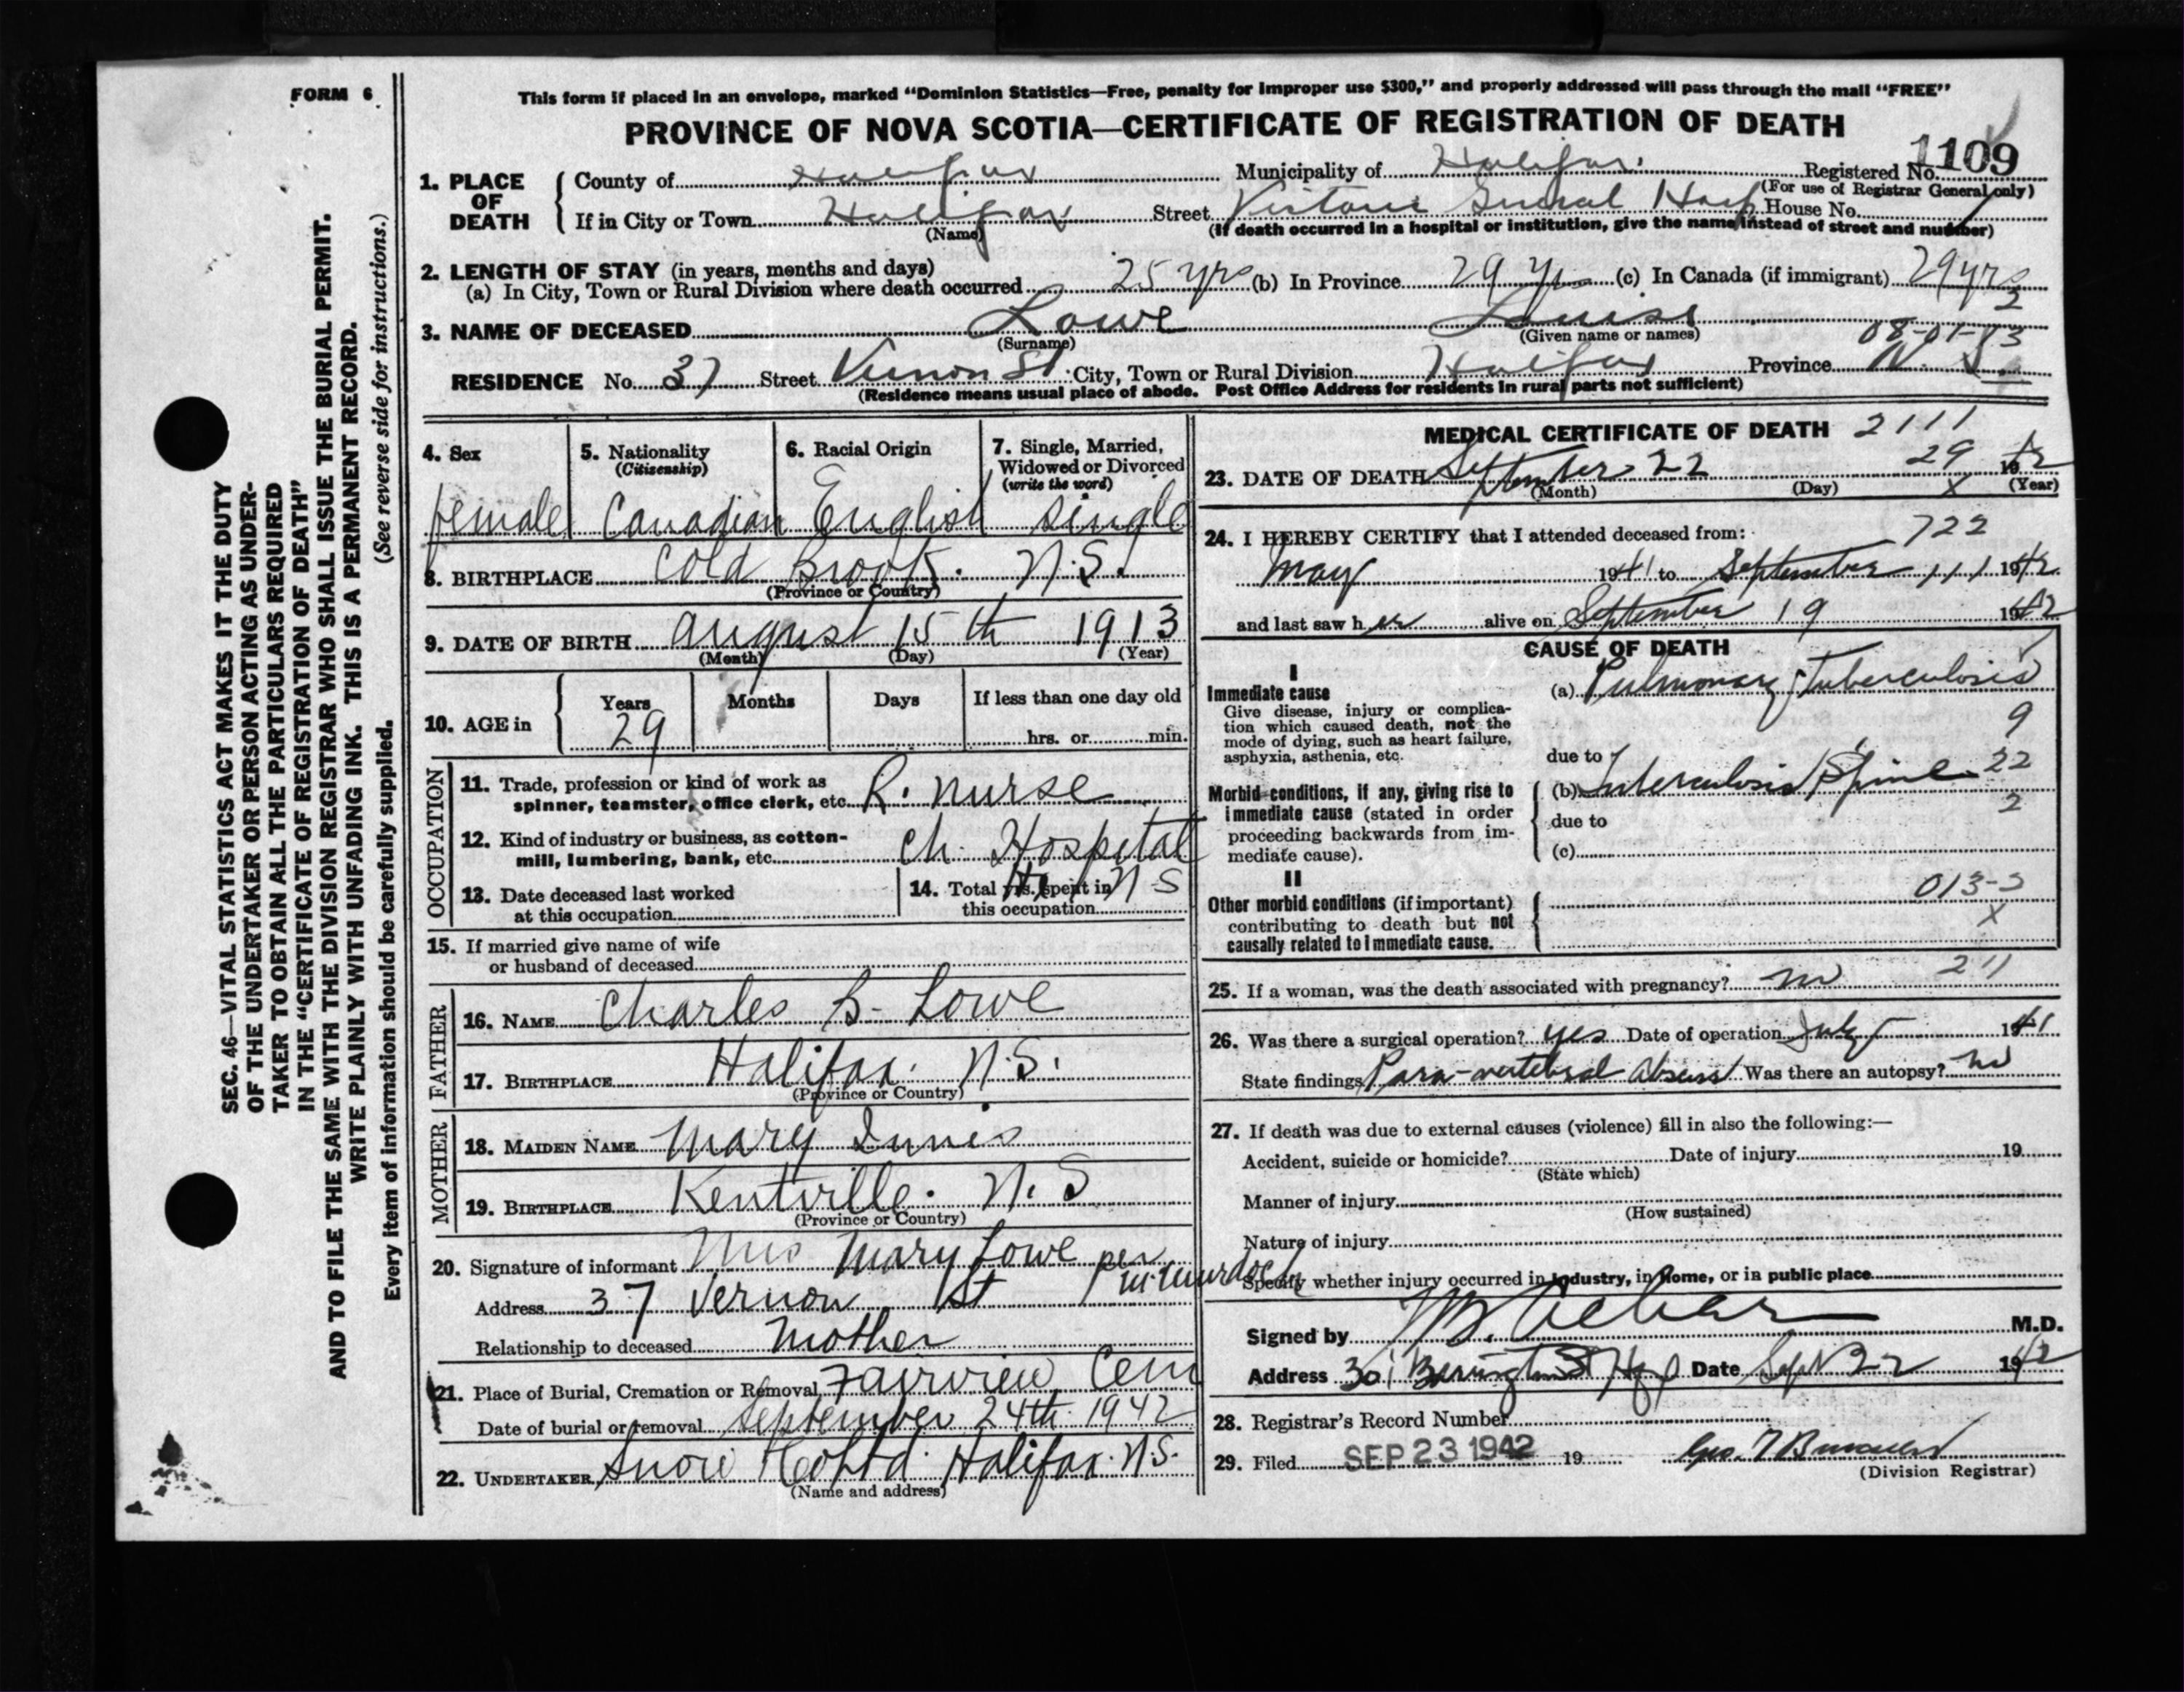 FORM 6
This form if placed in an envelope, marked "Dominion Statistics—Free, penalty for improper use $300," and properly addressed will pass through the mail "FREE"
PROVINCE OF NOVA SCOTIA—CERTIFICATE OF REGISTRATION OF DEATH
1. PLACE OF DEATH
County of Halifax Municipality of Halifax Registered No. 1109
(For use of Registrar General only)
If in City or Town Halifax Street Victoria General Hosp House No.
(Name) (If death occurred in a hospital or institution, give the name instead of street and number)
2. LENGTH OF STAY (in years, months and days)
(a) In City, Town or Rural Division where death occurred 25 yrs (b) In Province 29 Yrs (c) In Canada (if immigrant) 29 yrs
2
3. NAME OF DECEASED Lowe Louise
(Surname) (Given name or names) 08-01-13
RESIDENCE No. 37 Street Vernon St. City, Town or Rural Division Halifax Province N.S.
(Residence means usual place of abode. Post Office Address for residents in rural parts not sufficient)
4. Sex
female
5. Nationality
(Citizenship)
Canadian
6. Racial Origin
English
7. Single, Married, Widowed or Divorced
(write the word)
single
8. BIRTHPLACE Cold Brook. N.S.
(Province or Country)
9. DATE OF BIRTH August 15th 1913
(Month) (Day) (Year)
10. AGE in
Years Months Days If less than one day old
29
hrs. or min.
OCCUPATION
11. Trade, profession or kind of work as
spinner, teamster, office clerk, etc. R. nurse
12. Kind of industry or business, as cotton-
mill, lumbering, bank, etc. Ch. Hospital
Hfx N S
13. Date deceased last worked
at this occupation
14. Total yrs. spent in
this occupation
15. If married give name of wife
or husband of deceased
FATHER
16. NAME Charles B. Lowe
17. BIRTHPLACE Halifax. N.S.
(Province or Country)
MOTHER
18. MAIDEN NAME Mary Innis
19. BIRTHPLACE Kentville. N.S
(Province or Country)
20. Signature of informant Mrs Mary Lowe per
M. Murdoch
Address 37 Vernon St
Relationship to deceased Mother
21. Place of Burial, Cremation or Removal Fairview Cem
Date of burial or removal September 24th 1942
22. UNDERTAKER Snow & Co Ltd. Halifax. N.S.
(Name and address)
MEDICAL CERTIFICATE OF DEATH 2111
29
23. DATE OF DEATH September 22 1942
(Month) (Day) (Year)
X
24. I HEREBY CERTIFY that I attended deceased from: 722
May 1941 to September 1942
and last saw her alive on September 19 1942
CAUSE OF DEATH
I
Immediate cause
Give disease, injury or complica-
tion which caused death, not the
mode of dying, such as heart failure,
asphyxia, asthenia, etc.
(a) Pulmonary Tuberculosis
9
due to
Morbid conditions, if any, giving rise to
immediate cause (stated in order
proceeding backwards from im-
mediate cause).
(b) Tuberculosis Spine 22
2
due to
(c)
II
Other morbid conditions (if important)
contributing to death but not
causally related to immediate cause.
X
25. If a woman, was the death associated with pregnancy? no 211
26. Was there a surgical operation? yes Date of operation July 1941
State findings Para-vertebral abscess Was there an autopsy? no
27. If death was due to external causes (violence) fill in also the following:—
Accident, suicide or homicide? Date of injury 19
(State which)
Manner of injury
(How sustained)
Nature of injury
Specify whether injury occurred in industry, in home, or in public place
Signed by M.D.
Address Date Sept 22 1942
28. Registrar's Record Number
29. Filed SEP 23 1942 19
(Division Registrar)
SEC. 46—VITAL STATISTICS ACT MAKES IT THE DUTY
OF THE UNDERTAKER OR PERSON ACTING AS UNDER-
TAKER TO OBTAIN ALL THE PARTICULARS REQUIRED
IN THE "CERTIFICATE OF REGISTRATION OF DEATH"
AND TO FILE THE SAME WITH THE DIVISION REGISTRAR WHO SHALL ISSUE THE BURIAL PERMIT.
WRITE PLAINLY WITH UNFADING INK. THIS IS A PERMANENT RECORD.
(See reverse side for instructions.)
Every item of information should be carefully supplied.